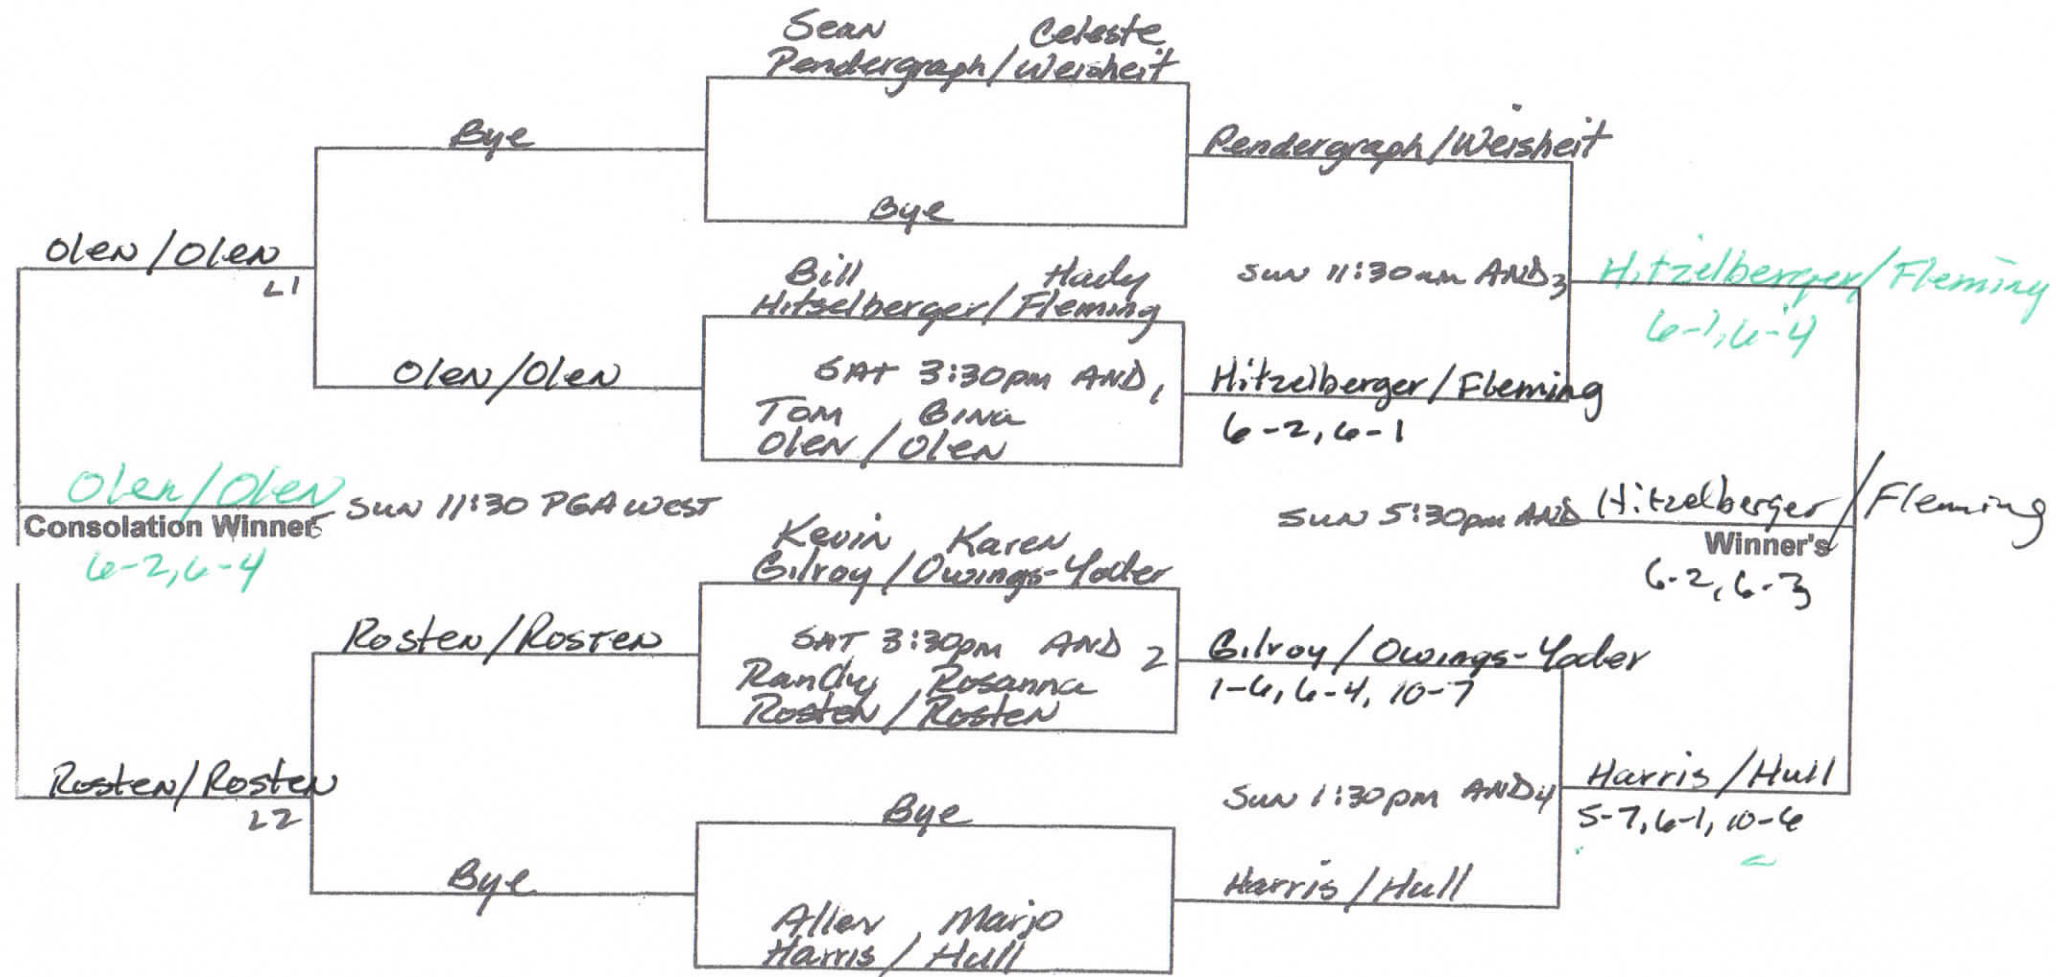 Sean Celeste
Pendergraph/Weisheit
Bye
Pendergraph/Weisheit
Bye
Olen/Olen
L1
Bill Hady
Hitselberger/Fleming
Sun 11:30am AND 3
Hitzelberger/Fleming
6-1, 6-4
Olen/Olen
SAT 3:30pm AND 1
Tom Gina
Olen/Olen
Hitzelberger/Fleming
6-2, 6-1
Olen/Olen
Consolation Winner
6-2, 6-4
Sun 11:30 PGA West
Sun 5:30pm AND
Hitzelberger/Fleming
Winner's
6-2, 6-3
Kevin Karen
Gilroy/Owings-Yoder
Rosten/Rosten
SAT 3:30pm AND 2
Randy Rosanna
Rosten/Rosten
Gilroy/Owings-Yoder
1-6, 6-4, 10-7
Rosten/Rosten
L2
Bye
Sun 1:30pm AND 4
Harris/Hull
5-7, 6-1, 10-6
Bye
Allen Marjo
Harris/Hull
Harris/Hull